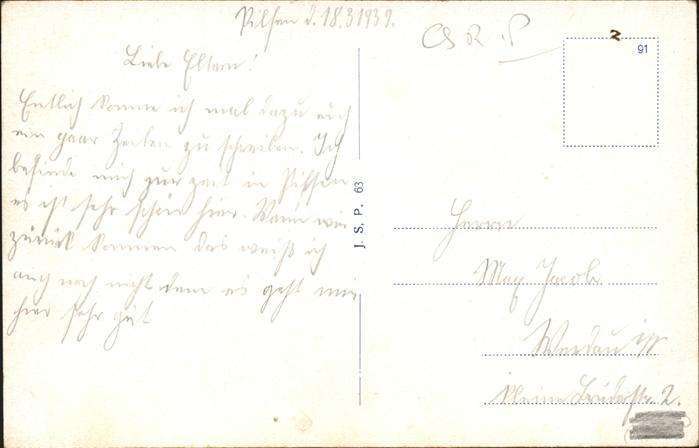 Pilsen d. 18.3.1939.
Liebe Eltern!
Entlich komme ich mal dazu euch
ein paar Zeilen zu schreiben. Ich
befinde mich zur zeit in Pilsen
es ist sehr schön hier. Wann wir
zurück kommen das weiß ich
auch noch nicht denn es geht mir
hier sehr gut
J. S. P. 63
91
Herrn
Max Jacob
Werdau i/S
Kleine Brüderstr. 2.